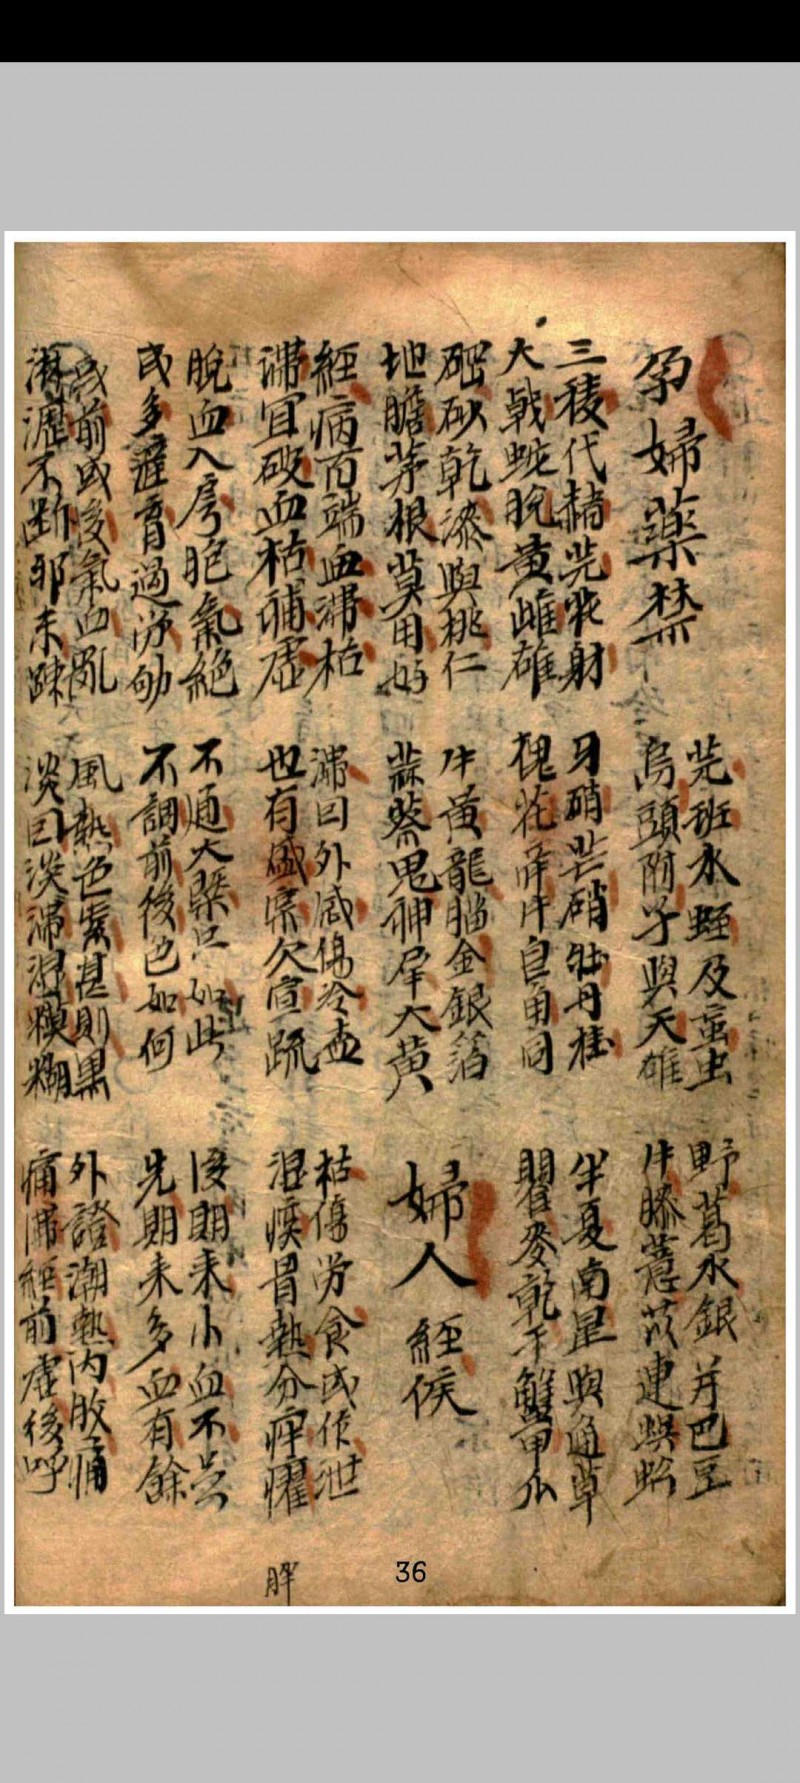 孕婦藥禁
芫班水蛭及蝱虫
烏頭附子與天雄
野葛水銀并巴豆
牛膝薏苡連蜈蚣
三稜代赭芫花射
大戟蛇脫黃雌雄
牙硝芒硝牡丹桂
槐花牽牛皂角同
半夏南星與通草
瞿麥乾干蟹甲爪
硇砂乾漆與桃仁
地膽茅根莫用好
牛黃龍腦金銀箔
鬼神犀大黃
婦人經候
經病百端血滯枯
滯宜破血枯補虛
滯因外感傷冷
也有盛宗欠宣疏
枯傷勞食或作泄
湿痰胃熱分痺懼
脫血入房胞氣絕
或多產育過勞劬
不通大槩只如此
不調前後色如何
後期來小血不足
先期來多血有餘
或前或後氣血亂
淋瀝不斷邪未踈
風熱色紫甚則黑
淡因淡滯混糢糊
外證潮熱內肢痛
痛滯經前虛後呼
36